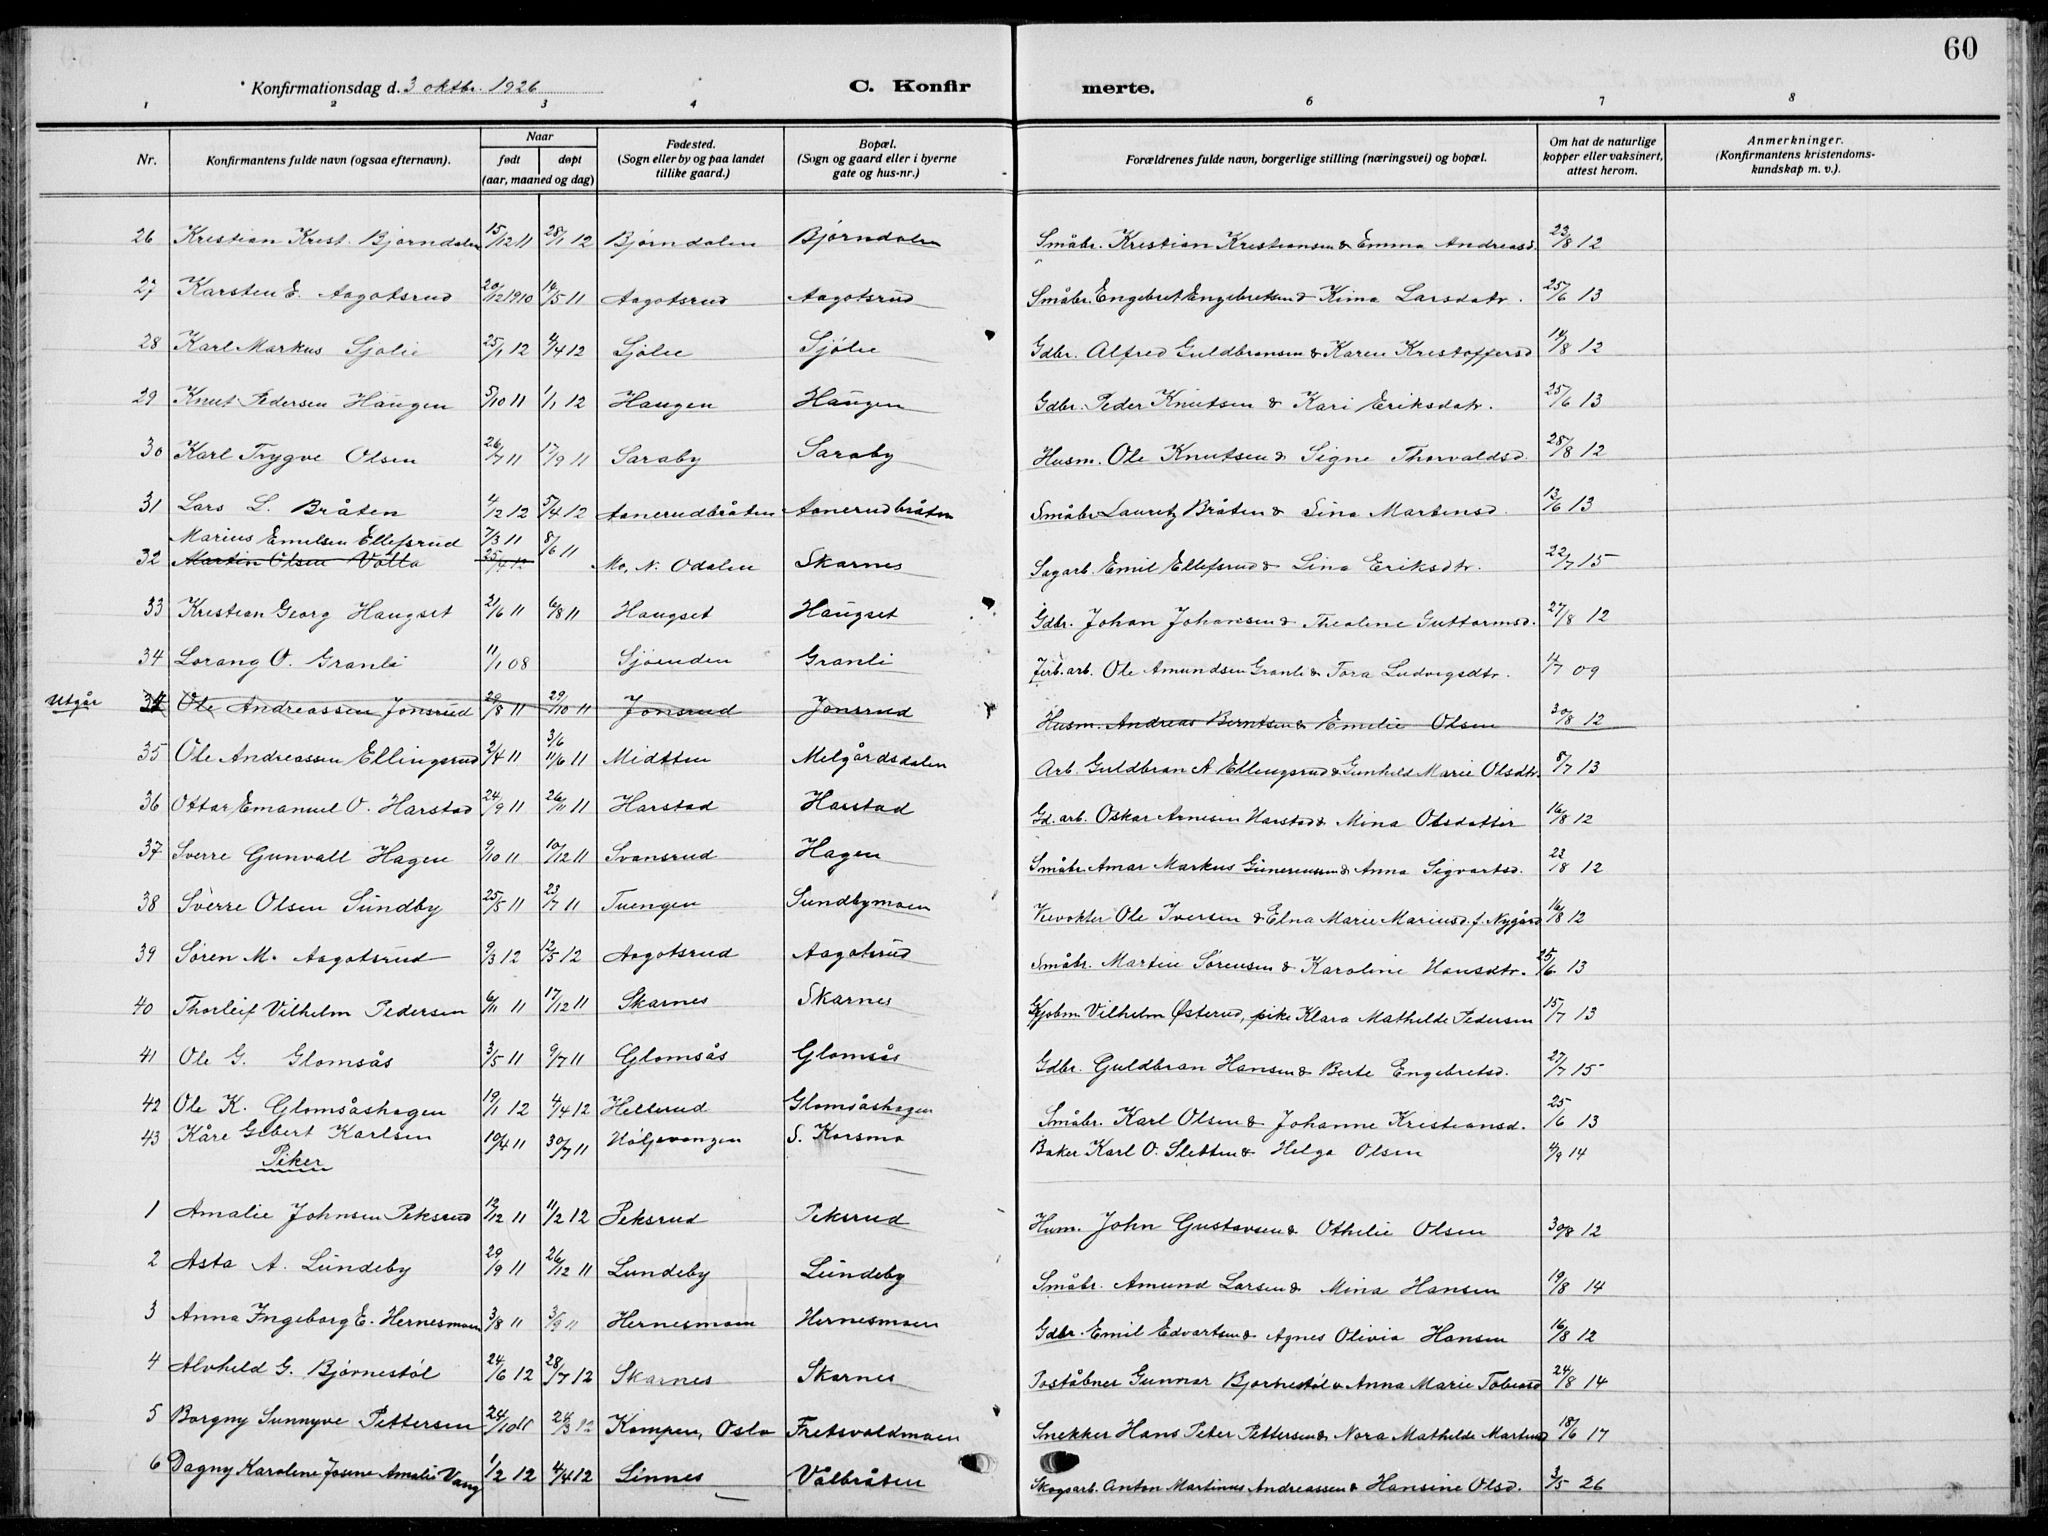 60
Konfirmationsdag d. 3 oktbr. 1926 C. Konfirmerte.
1 2 3 4 6 7 8
Nr. Konfirmantens fulde navn (ogsaa efternavn). Naar født døpt (aar, maaned og dag) Fødested. (Sogn eller by og paa landet tillike gaard.) Bopæl. (Sogn og gaard eller i byerne gate og hus-nr.) Forældrenes fulde navn, borgerlige stilling (næringsvei) og bopæl. Om hat de naturlige kopper eller vaksinert, attest herom. Anmerkninger. (Konfirmantens kristendomskundskap m. v.).
26 Kristian Krist. Bjørndalen 15/12 11 28/1 12 Bjørndalen Bjørndalen Småbr. Kristian Kristiansen & Emma Andreasd. 23/8 12
27 Karsten E. Aagotsrud 20/12 1910 14/5 11 Aagotsrud Aagotsrud Småbr. Engebret Engebretsen & Kima Larsdatr. 25/6 13
28 Karl Markus Sjølie 25/1 12 4/4 12 Sjølie Sjølie Gdbr. Alfred Guldbransen & Karen Kristoffersd. 14/8 12
29 Knut Pedersen Haugen 5/10 11 1/1 12 Haugen Haugen Gdbr. Peder Knutsen & Kari Eriksdatr. 25/6 13
30 Karl Trygve Olsen 26/7 11 17/9 11 Saraby Saraby Husm. Ole Knutsen & Signe Thorvaldsd. 28/8 12
31 Lars L. Bråten 4/2 12 5/4 12 Aanerudbråten Aanerudbråten Småbr. Lauritz Bråten & Lina Martinsd. 13/6 13
Marius Emilsen Ellefsrud 7/3 11 8/6 11
32 Martin Olsen Volla 25/4 12 Mo, N. Odalen Skarnes Sagarb. Emil Ellefsrud & Lina Eriksdtr. 22/7 15
33 Kristian Georg Haugset 21/6 11 6/8 11 Haugset Haugset Gdbr. Johan Johansen & Theoline Guttormsd. 27/8 12
34 Lorang O. Granli 11/1 08 Sjøenden Granli Jerb.arb. Ole Amundsen Granli & Tora Ludvigsdtr. 14/7 09
Utgår 34 Ole Andreassen Jonsrud 29/8 11 29/10 11 Jonsrud Jonsrud Husm. Andreas Berntsen & Emelie Olsen 30/8 12
35 Ole Andreassen Ellingsrud 2/4 11 3/6 11/6 11 Midtten Melgårdsdalen Arb. Guldbran A Ellingsrud & Gunhild Marie Olsdtr. 8/7 13
36 Ottar Emanuel O. Harstad 24/9 11 26/11 11 Harstad Harstad Gd. arb. Oskar Arnesen Harstad & Mina Olsdatter 16/8 12
37 Sverre Gunvall Hagen 9/10 11 10/12 11 Svansrud Hagen Småbr. Amar Markus Gunereussen & Anna Sigvartsd. 23/8 12
38 Sverre Olsen Sundby 25/5 11 23/7 11 Tuengen Sundbymoen Veivokter Ole Iversen & Elna Marie Mariusd. f. Nygård 16/8 12
39 Søren M. Aagotsrud 9/3 12 12/5 12 Aagotsrud Aagotsrud Småbr. Martin Sørensen & Karoline Hansdtr. 25/6 13
40 Thorleif Vilhelm Pedersen 6/11 11 17/12 11 Skarnes Skarnes Kjøbm. Vilhelm Østerud, pike Klara Mathilde Pedersen 15/7 13
41 Ole G. Glomsås 3/5 11 9/7 11 Glomsås Glomsås Gdbr. Guldbran Hansen & Berte Engebretsd. 27/7 15
42 Ole K. Glomsåshagen 19/1 12 4/4 12 Hellerud Glomsåshagen Småbr. Karl Olsen & Johanne Kristiansd. 25/6 13
43 Kåre Gebert Karlsen 10/4 11 30/7 11 Høljevangen S. Korsmo Baker Karl O. Sletten & Helga Olsen 4/9 14
Piker
1 Amalie Johnsen Peksrud 12/12 11 11/2 12 Peksrud Peksrud Husm. John Gustavsen & Othilie Olsen 30/8 12
2 Asta A. Lundeby 29/9 11 26/12 11 Lundeby Lundeby Småbr. Amund Larsen & Mina Hansen 19/8 14
3 Anna Ingeborg E. Hernesmoen 3/8 11 3/9 11 Hernesmoen Hernesmoen Gdbr. Emil Edvartsen & Agnes Olivia Hansen 16/8 12
4 Alvhild G. Bjørnestøl 24/6 12 28/7 12 Skarnes Skarnes Poståbner Gunnar Bjørnestøl & Anna Marie Tobiasd 24/8 14
5 Borgny Sunnyve Pettersen 24/10 11 24/3 12 Kampen, Oslo Fretsvoldmoen Snekker Hans Peter Pettersen & Nora Mathilde Martinsd 18/6 17
6 Dagny Karoline Josene Amalie Vang 1/2 12 4/4 12 Linnes Vålbråten Skogsarb. Anton Martinus Andreassen & Hansine Olsd. 3/5 26